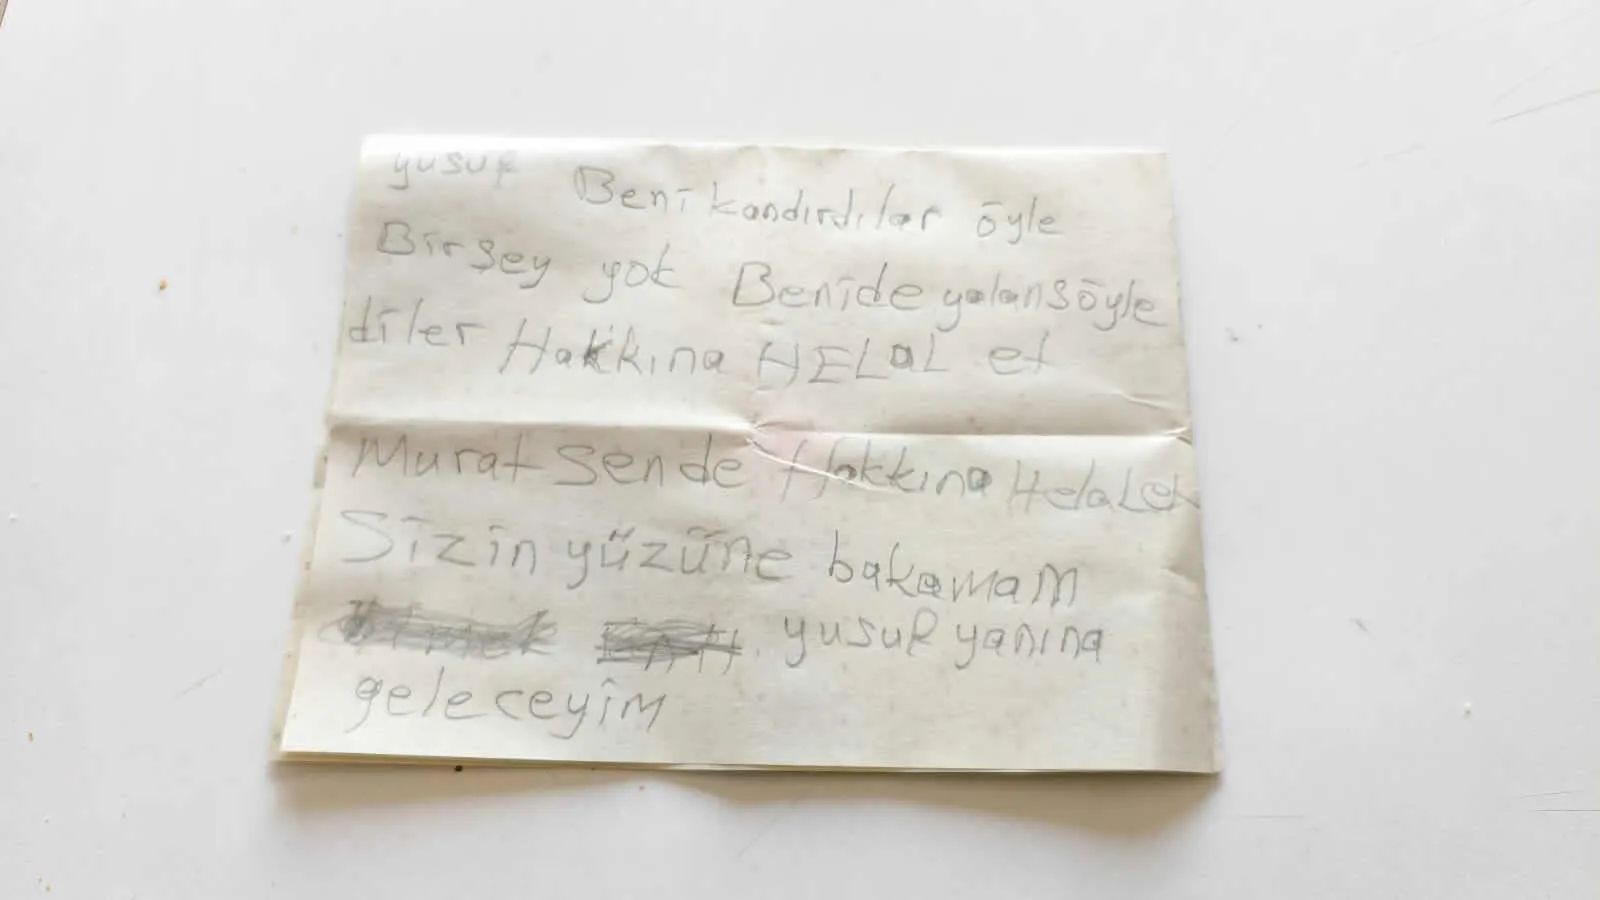 yusuf Beni kandırdılar öyle
Birşey yok Benide yalansöyle
diler Hakkına HELaL et
Murat Sende Hakkına Helalet
Sizin yüzüne bakamam
yusuf yanına
geleceyim